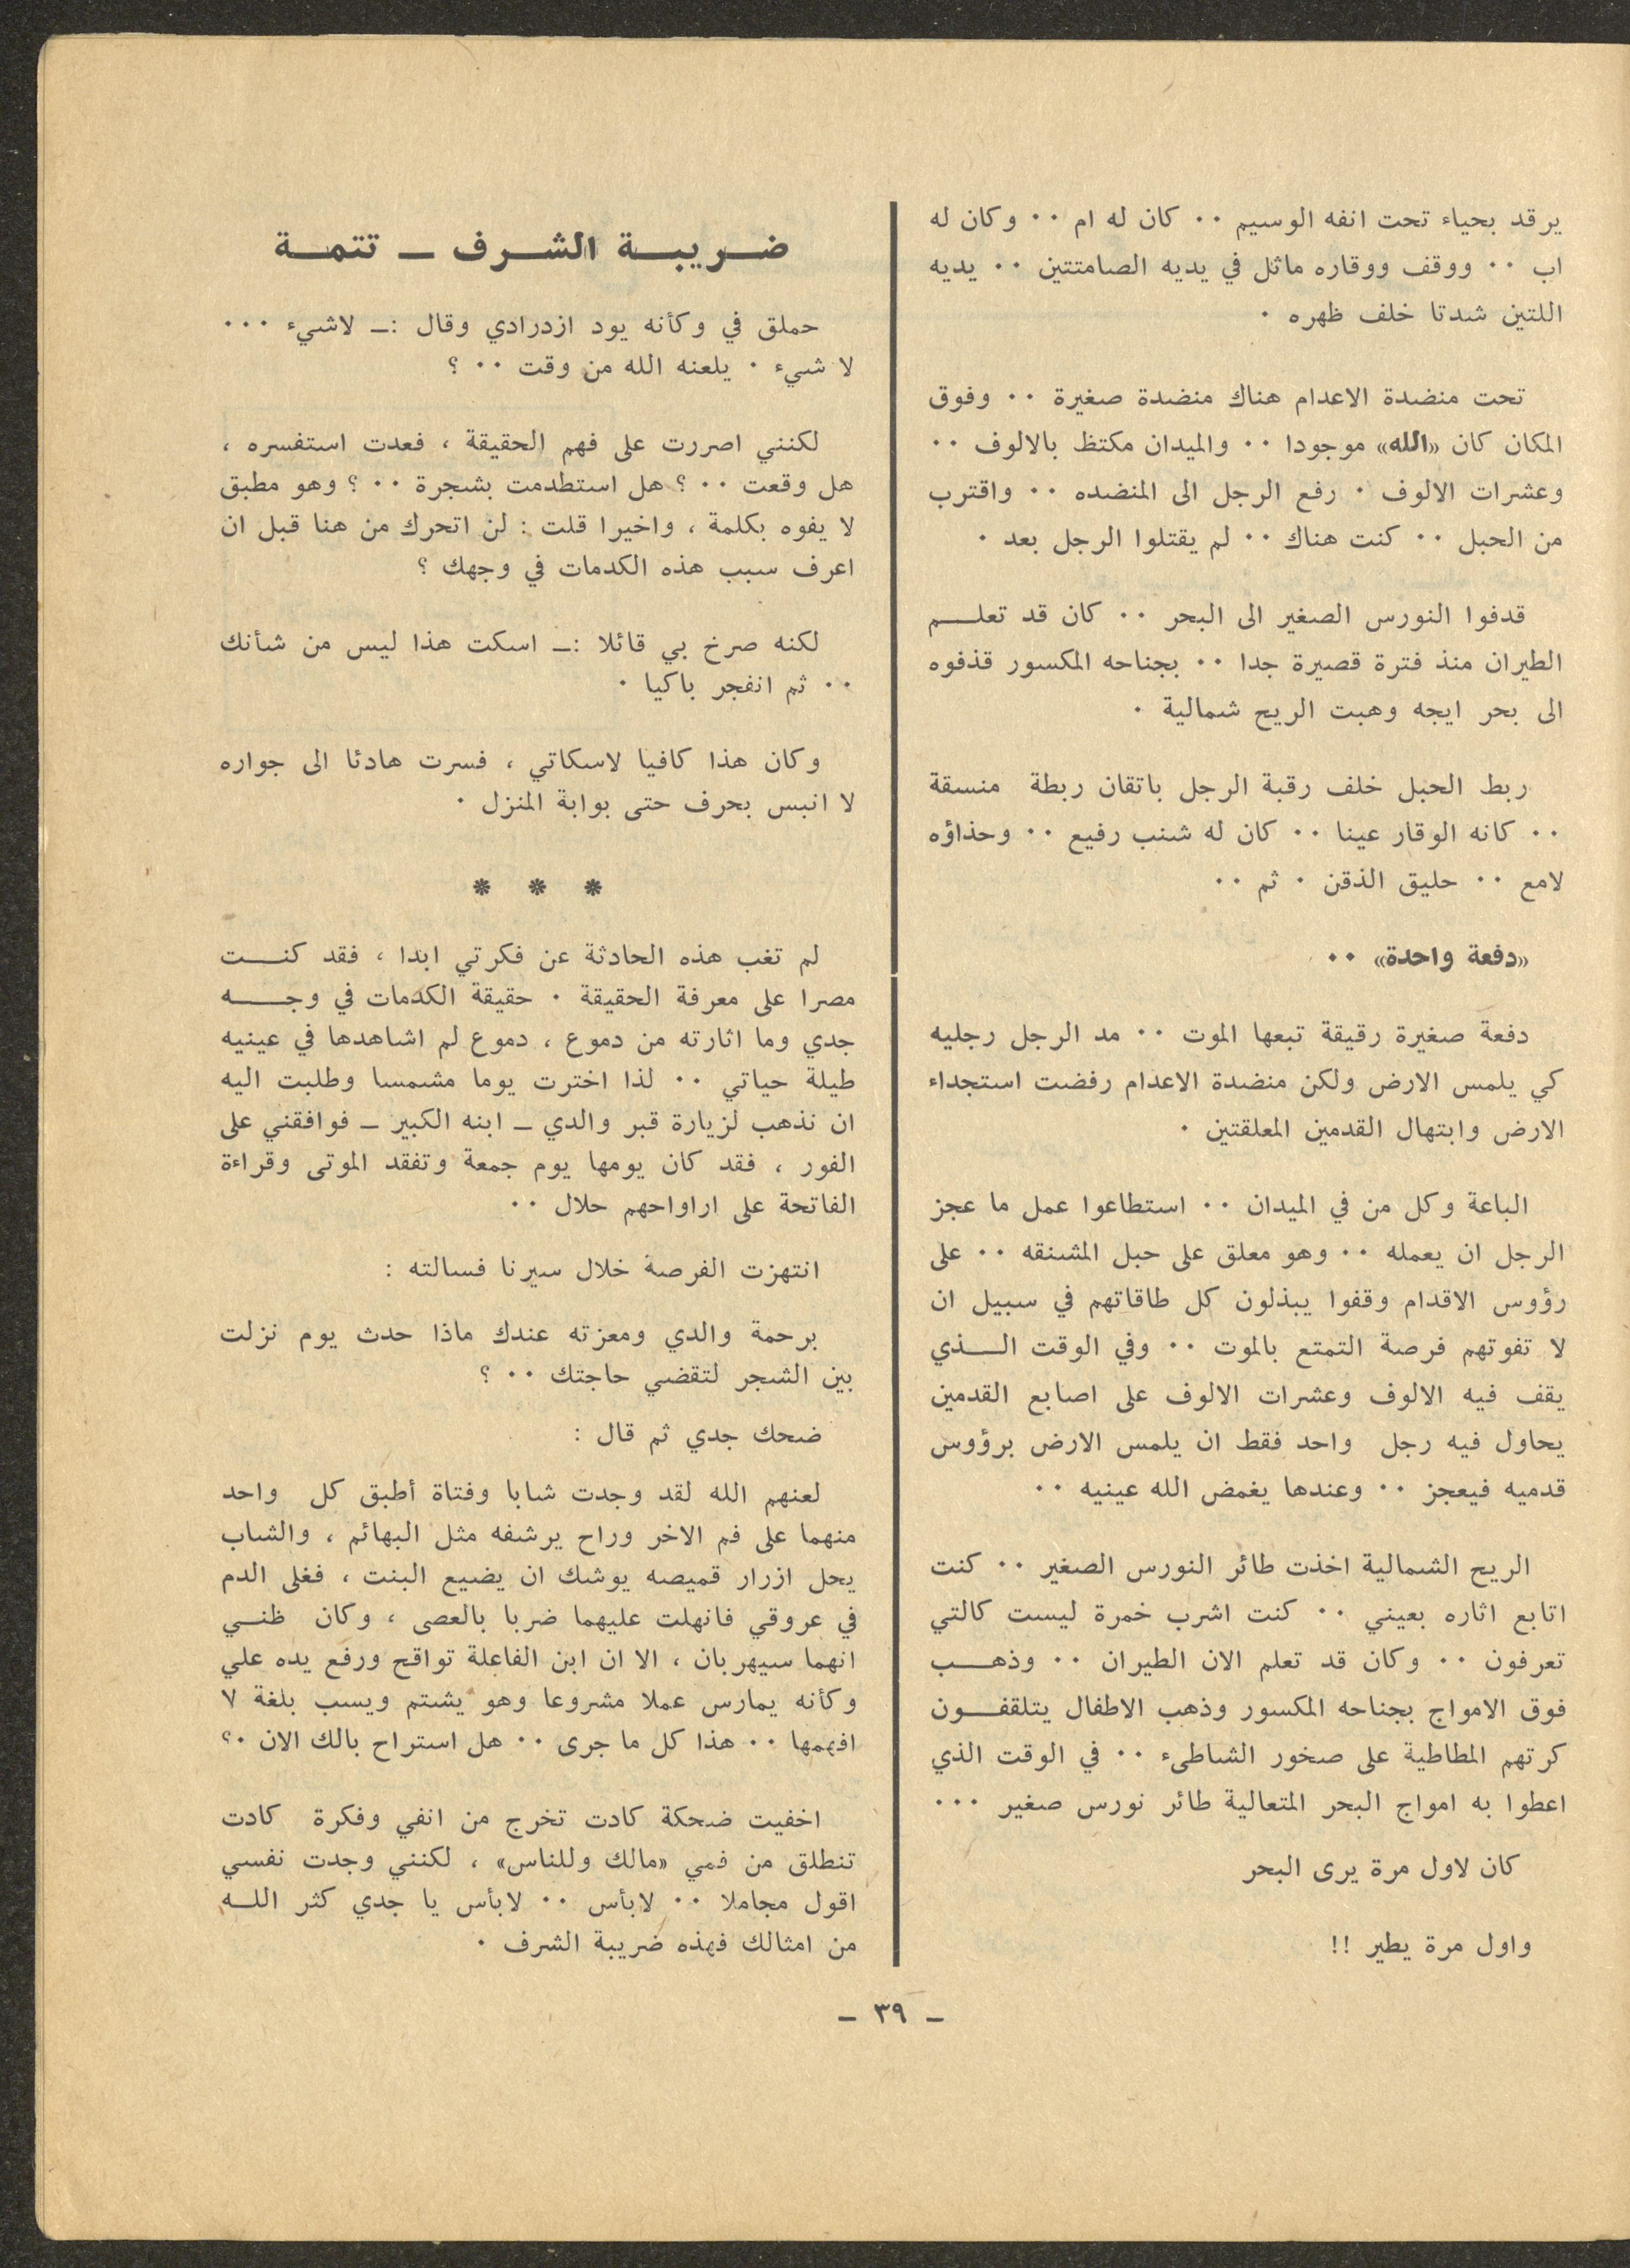 يرقد بحياء تحت انفه الوسيم ٠٠ كان له ام ٠٠ وكان له
اب ٠٠ ووقف ووقاره ماثل في يديه الصامتتين ٠٠ يديه
اللتين شدتا خلف ظهره ٠
تحت منضدة الاعدام هناك منضدة صغيرة ٠٠ وفوق
المكان كان «الله» موجودا ٠٠ والميدان مكتظ بالالوف ٠٠
وعشرات الالوف ٠ رفع الرجل الى المنضده ٠٠ واقترب
من الحبل ٠٠ كنت هناك ٠٠ لم يقتلوا الرجل بعد ٠
قدفوا النورس الصغير الى البحر ٠٠ كان قد تعلـــم
الطيران منذ فترة قصيرة جدا ٠٠ بجناحه المكسور قذفوه
الى بحر ايجه وهبت الريح شمالية ٠
ربط الحبل خلف رقبة الرجل باتقان ربطة منسقة
٠٠ كانه الوقار عينا ٠٠ كان له شنب رفيع ٠٠ وحذاؤه
لامع ٠٠ حليق الذقن ٠ ثم ٠٠
«دفعة واحدة» ٠٠
دفعة صغيرة رقيقة تبعها الموت ٠٠ مد الرجل رجليه
كي يلمس الارض ولكن منضدة الاعدام رفضت استجداء
الارض وابتهال القدمين المعلقتين ٠
الباعة وكل من في الميدان ٠٠ استطاعوا عمل ما عجز
الرجل ان يعمله ٠٠ وهو معلق على حبل المشنقه ٠٠ على
رؤوس الاقدام وقفوا يبذلون كل طاقاتهم في سبيل ان
لا تفوتهم فرصة التمتع بالموت ٠٠ وفي الوقت الـــذي
يقف فيه الالوف وعشرات الالوف على اصابع القدمين
يحاول فيه رجل واحد فقط ان يلمس الارض برؤوس
قدميه فيعجز ٠٠ وعندها يغمض الله عينيه ٠٠
الريح الشمالية اخذت طائر النورس الصغير ٠٠ كنت
اتابع اثاره بعيني ٠٠ كنت اشرب خمرة ليست كالتي
تعرفون ٠٠ وكان قد تعلم الان الطيران ٠٠ وذهـــب
فوق الامواج بجناحه المكسور وذهب الاطفال يتلقفـــون
كرتهم المطاطية على صخور الشاطىء ٠٠ في الوقت الذي
اعطوا به امواج البحر المتعالية طائر نورس صغير ٠٠٠
كان لاول مرة يرى البحر
واول مرة يطير !!
ضـريبـة الشـرف ـ تتمـة
حملق في وكأنه يود ازدرادي وقال :ـ لاشيء ٠٠٠
لا شيء ٠ يلعنه الله من وقت ٠٠ ؟
لكنني اصررت على فهم الحقيقة ، فعدت استفسره ،
هل وقعت ٠٠ ؟ هل استطدمت بشجرة ٠٠ ؟ وهو مطبق
لا يفوه بكلمة ، واخيرا قلت : لن اتحرك من هنا قبل ان
اعرف سبب هذه الكدمات في وجهك ؟
لكنه صرخ بي قائلا :ـ اسكت هذا ليس من شأنك
٠٠ ثم انفجر باكيا ٠
وكان هذا كافيا لاسكاتي ، فسرت هادئا الى جواره
لا انبس بحرف حتى بوابة المنزل ٠
* * *
لم تغب هذه الحادثة عن فكرتي ابدا ، فقد كنـــت
مصرا على معرفة الحقيقة ٠ حقيقة الكدمات في وجـــه
جدي وما اثارته من دموع ، دموع لم اشاهدها في عينيه
طيلة حياتي ٠٠ لذا اخترت يوما مشمسا وطلبت اليه
ان نذهب لزيارة قبر والدي ـ ابنه الكبير ـ فوافقني على
الفور ، فقد كان يومها يوم جمعة وتفقد الموتى وقراءة
الفاتحة على اراواحهم حلال ٠٠
انتهزت الفرصة خلال سيرنا فسالته :
برحمة والدي ومعزته عندك ماذا حدث يوم نزلت
بين الشجر لتقضي حاجتك ٠٠ ؟
ضحك جدي ثم قال :
لعنهم الله لقد وجدت شابا وفتاة أطبق كل واحد
منهما على فم الاخر وراح يرشفه مثل البهائم ، والشاب
يحل ازرار قميصه يوشك ان يضيع البنت ، فغلى الدم
في عروقي فانهلت عليهما ضربا بالعصى ، وكان ظنـــي
انهما سيهربان ، الا ان ابن الفاعلة تواقح ورفع يده علي
وكأنه يمارس عملا مشروعا وهو يشتم ويسب بلغة ٧
افهمها ٠٠ هذا كل ما جرى ٠٠ هل استراح بالك الان ٠؟
اخفيت ضحكة كادت تخرج من انفي وفكرة كادت
تنطلق من فمي «مالك وللناس» ، لكنني وجدت نفسي
اقول مجاملا ٠٠ لابأس ٠٠ لابأس يا جدي كثر اللــه
من امثالك فهذه ضريبة الشرف ٠
ـ ٣٩ ـ